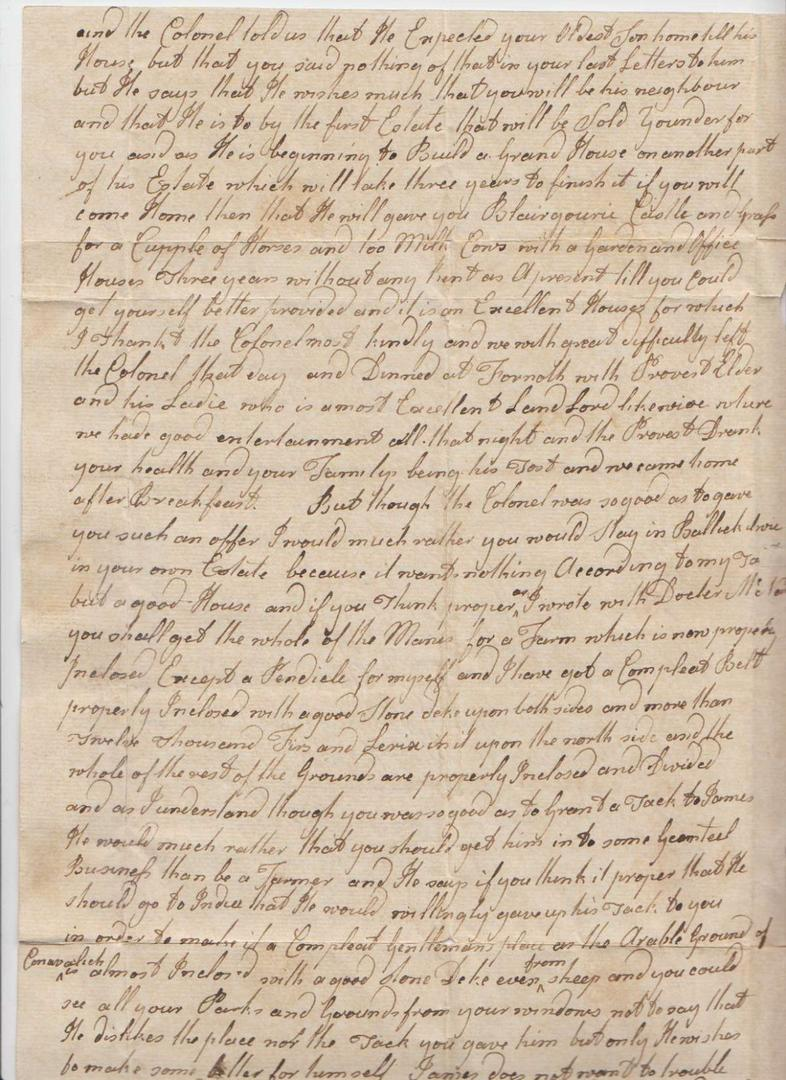 and the Colonel told us that He Expected your Oldest Son home till his
House but that you said nothing of that in your last Letters to him
but He says that He wishes much that you will be his neighbour
and that He is to by the first Estate that will be Sold Younder for
you and as He is beginning to Build a Grand House on another part
of his Estate which will take three years to finish it if you will
come Home then that He will gave you Blairgourie Castle and Grass
for a Cupple of Horses and too Milk Cows with a Garden and Office
Houses Three years without any Rint as A present till you could
get yourself better provided and it is an Excellent Houses for which
I Thankt the Colonel most kindly and we with great difficulty left
the Colonel that day and Dinned at Fornoth with Provest Elder
and his Ladie who is a most Excellent Land Lord likewise where
we hade good entertainment all that night and the Provest Drank
your health and your Family being his Tost and we came home
after Breakfeast. But though the Colonel was so good as to gave
you such an offer I would much rather you would Stay in
in your own Estate because it wants nothing According to my
but a good House and if you Think proper as I wrote with Docter
you shall get the whole of the Manis for a Farm which is now properly
Inclosed Except a Pendicle for myself and I have got a Compleat Belt
properly Inclosed with a good Stone deke upon both sides and more than
Twelve Thousand Firs and Lerix in it upon the north side and the
whole of the rest of the Grounds are properly Inclosed and Divided
and as I understand though you was so good as to Grant a Tack to James
He would much rather that you should get him in to some Geenteel
Business than be a Farmer and He says if you think it proper that He
should go to Indie that He would willingly gave up his Tack to you
in order to make it a Compleat Gentlemans place as the Arable Ground of
is almost Inclosed with a good stone Deke even from sheep and you could
see all your Parks and Grounds from your windows not to say that
He dislikes the place nor the Tack you gave him but only He wishes
to make some better for himself James does not want to trouble